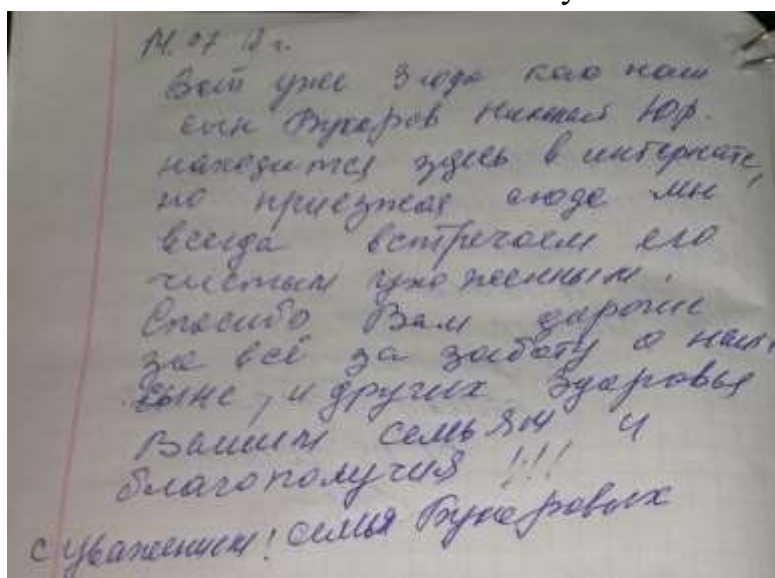 14.07 18 г.
Вот уже 3 года как наш
сын Букеров Николай Юр.
находится здесь в интернате,
но приезжая сюда мы
всегда встречаем его
чистым ухоженным.
Спасибо Вам дорогие
за всё за заботу о нашем
сыне, и других Здоровья
Вашим семьям и
благополучия !!!
с уважением! семья Букеровых